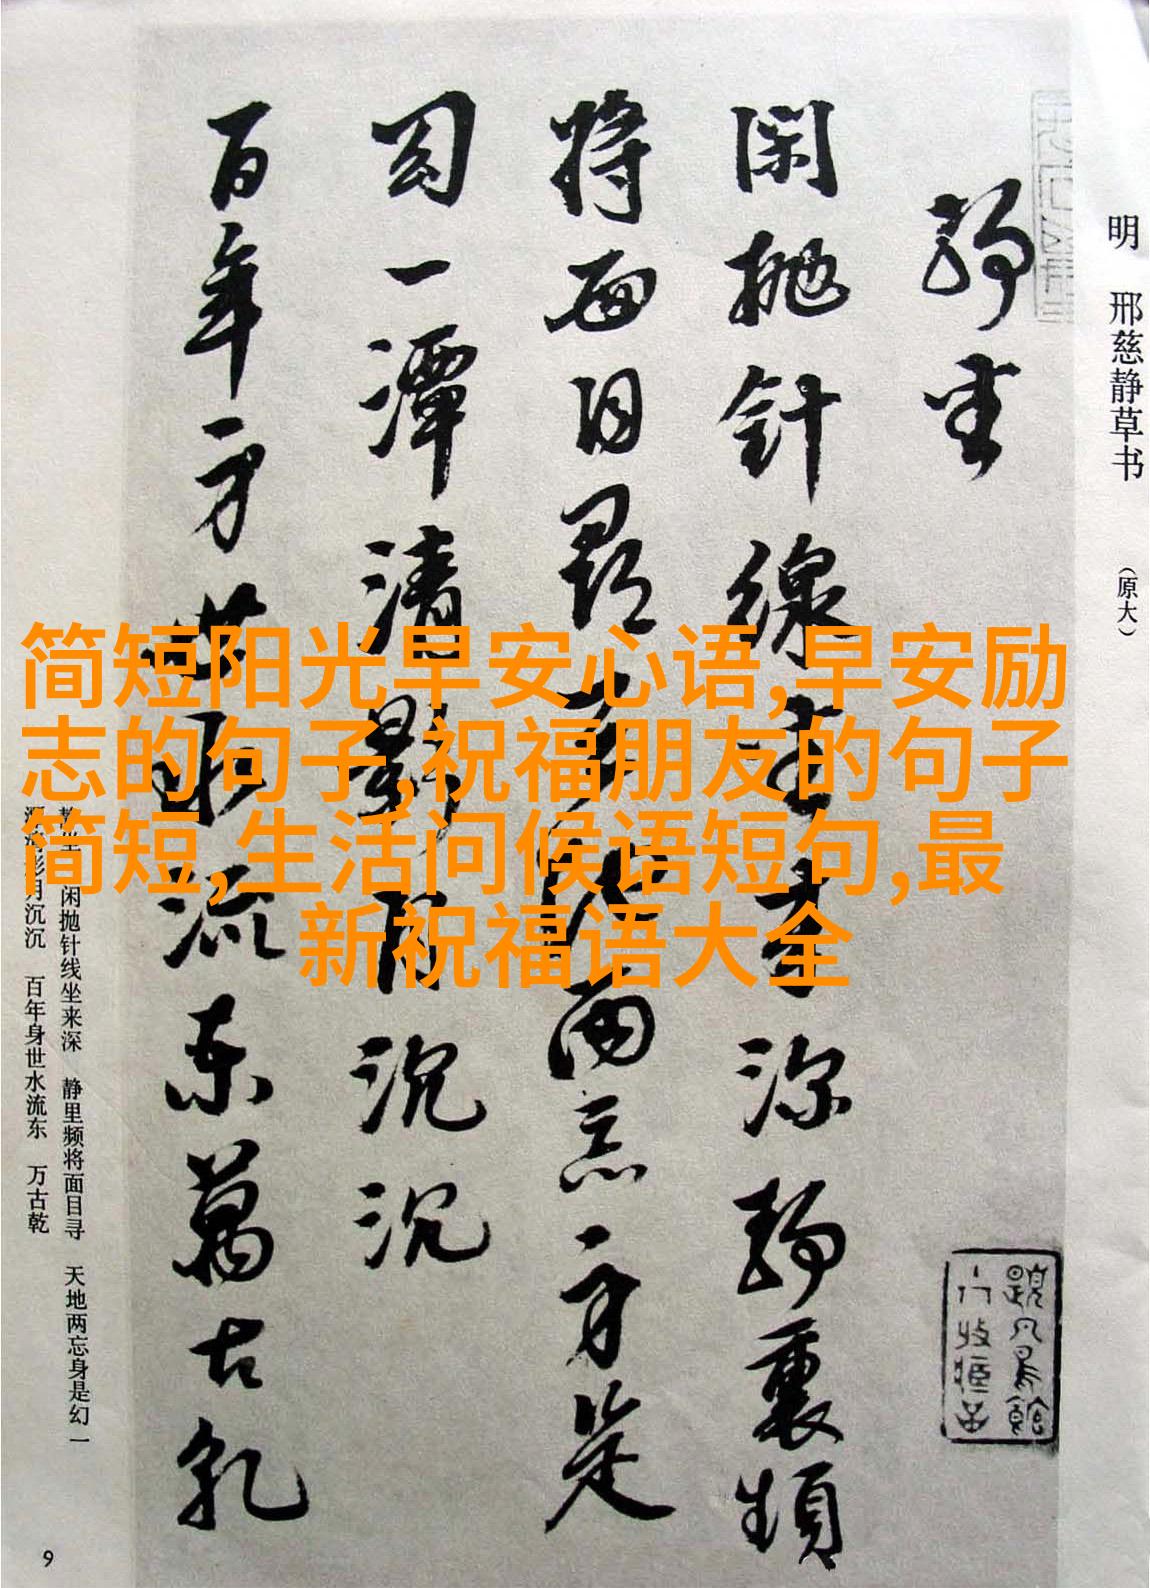 明 邢慈静草书 （原大）
静坐
闲抛针线坐来深静裏频
将面目寻天地两忘身是
幻一潭清影月沉沉
百年身世水流东万古乾
静坐 闲抛针线坐来深 静里频将面目寻 天地两忘身是幻 一
潭清影月沉沉 百年身世水流东 万古乾
简短阳光早安心语,早安励
志的句子,祝福朋友的句子
简短,生活问候语短句,最
新祝福语大全
9